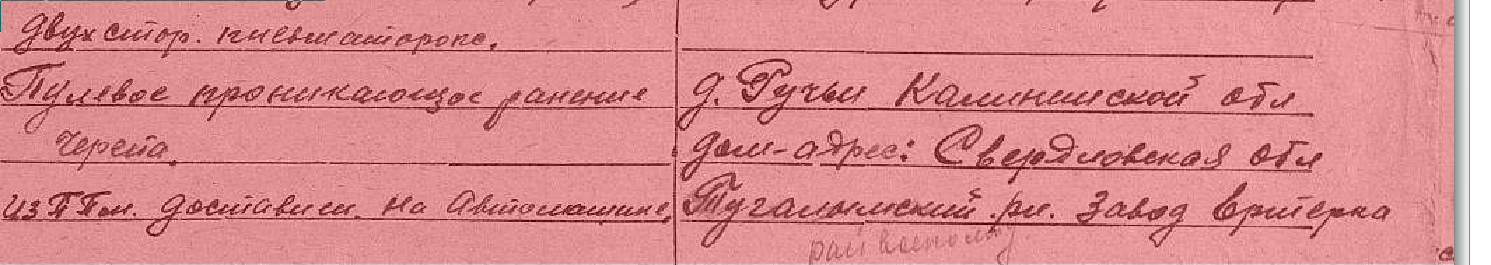 двухстор. пневматоракс.
Пулевое проникающее ранение
черепа.
из ППм. доставлен на Автомашине,
д. Ручьи Калининской обл
дом-адрес: Свердловская обл
Тугалымский рн. завод
райвоенкомат